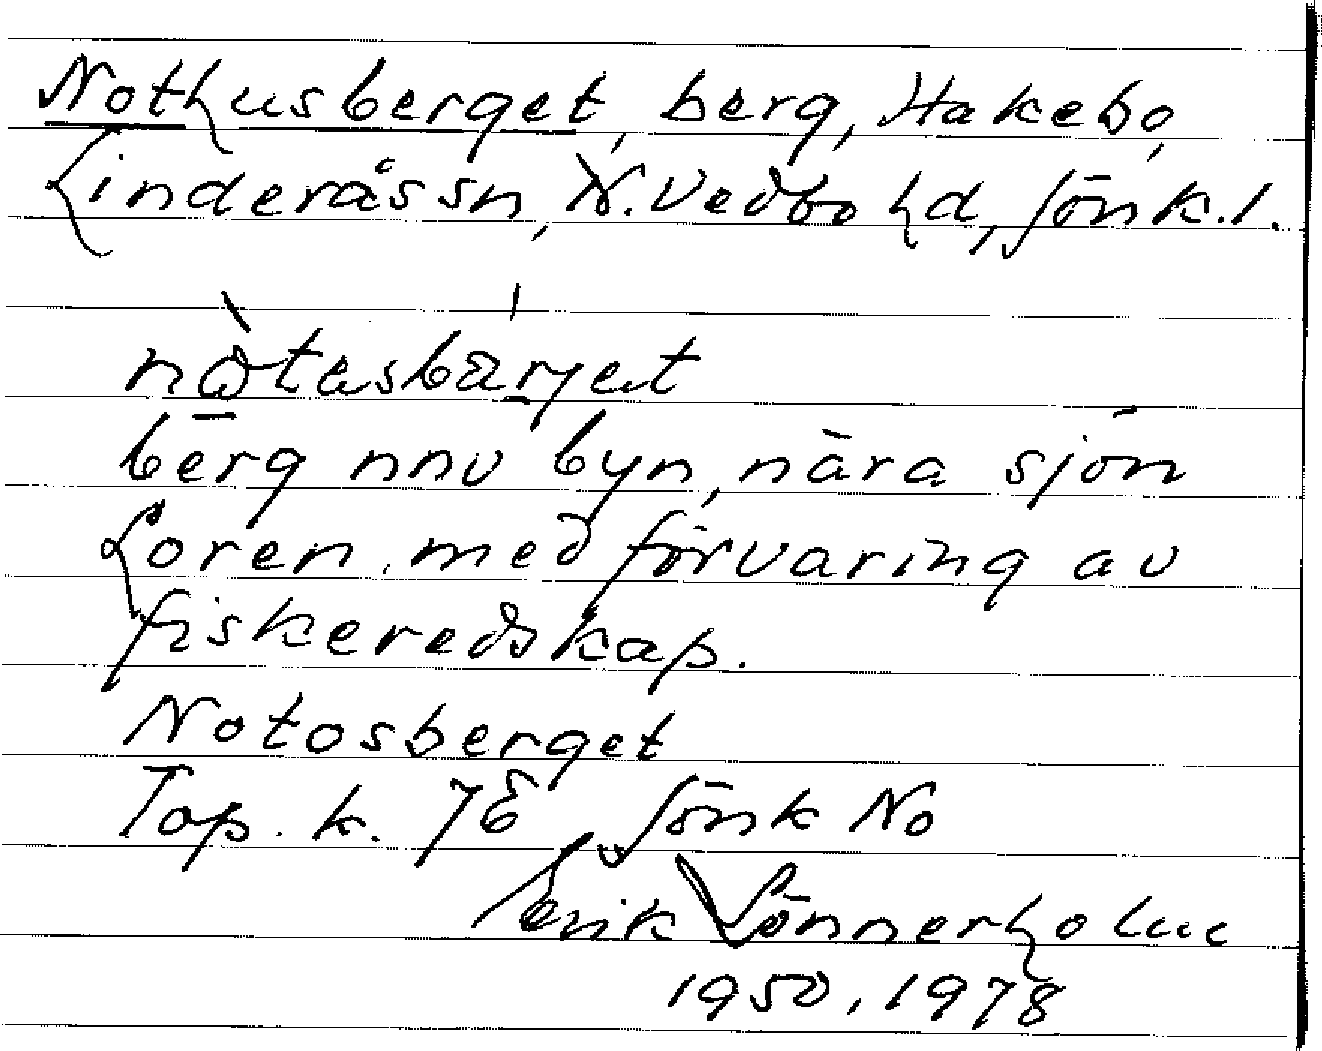 Nothusberget, berg, Hakebo,
Linderås sn, N. Vedbo hd, Jönk. l.
nòtasbärjet
berg nnv byn, nära sjön
Loren. med förvaring av
fiskeredskap.
Notosberget
Top. k. 7E Jönk No
Erik Lönnerholm
1950, 1978